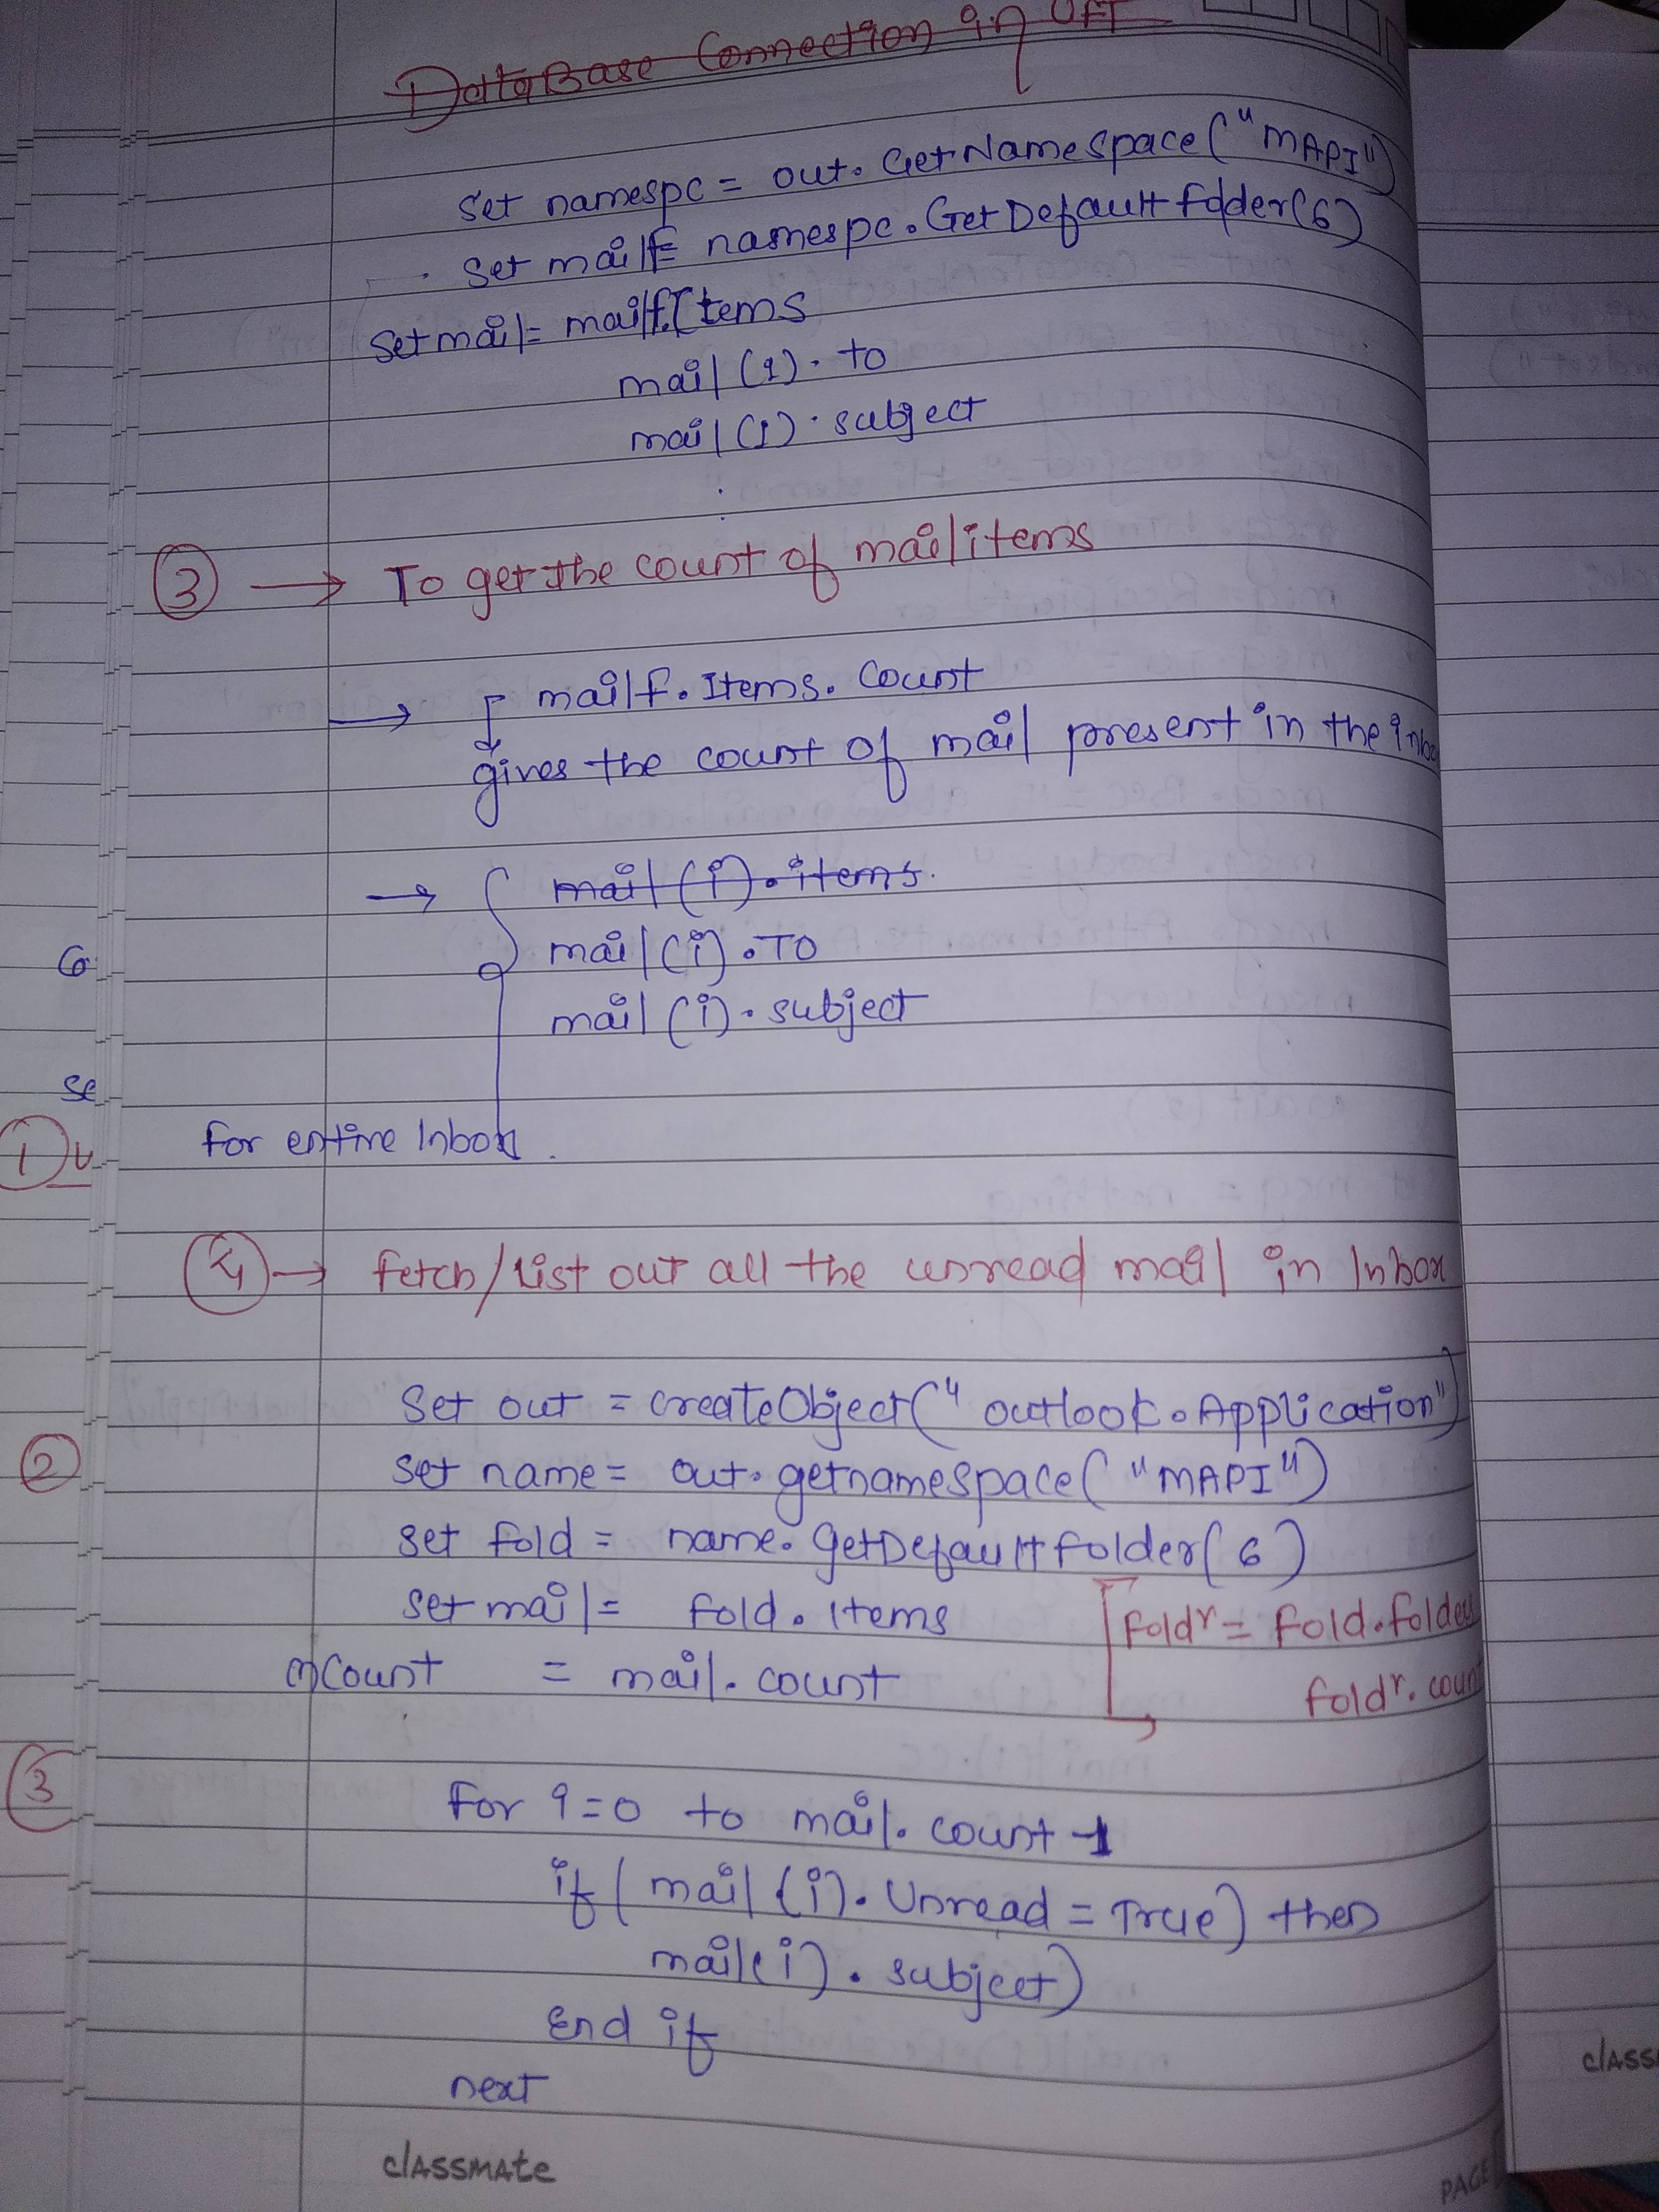 DataBase Connection in UFT
Set namespc = out.GetNamespace("MAPI")
Set mailf= namespc.GetDefaultfolder(6)
Set mail= mailf.Items
mail(1).to
mail(1).subject
3 → To get the count of mail items
→ mailf.Items.Count
gives the count of mail present in the inbo
→ mail(i).items.
mail(i).TO
mail(i).subject
for entire Inbox.
4 → fetch/List out all the unread mail in Inbox
Set out = createObject("outlook.Application")
Set name= out.getnamespace("MAPI")
set fold = name.getDefaultfolder(6)
set mail= fold.Items
foldr= fold.folders
mcount = mail.count
foldr.count
for i=0 to mail.count-1
if(mail(i).Unread=True) then
mail(i).subject)
End if
next
classmate
PAGE
Co
Se
1
2
3
class